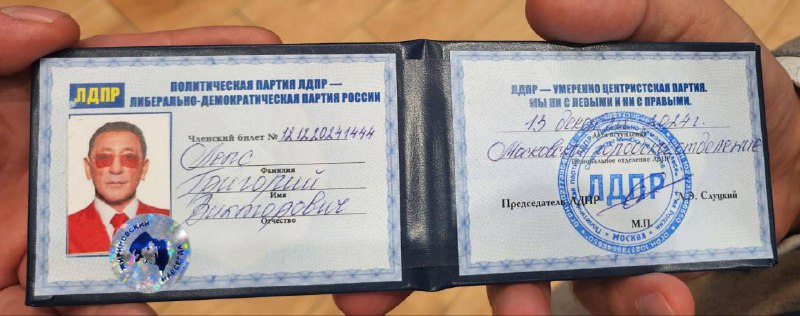 ЛДПР
ПОЛИТИЧЕСКАЯ ПАРТИЯ ЛДПР —
ЛИБЕРАЛЬНО-ДЕМОКРАТИЧЕСКАЯ ПАРТИЯ РОССИИ
Членский билет № 12.12.20241444
Лепс
Фамилия
Григорий
Имя
Викторович
Отчество
ЛДПР — УМЕРЕННО ЦЕНТРИСТСКАЯ ПАРТИЯ.
МЫ НИ С ЛЕВЫМИ И НИ С ПРАВЫМИ.
13 2024г.
Дата вступления
Московское отделение
отделение ЛДПР
ЛДПР
Председатель ЛДПР Л.Э. Слуцкий
М.П.
МОСКВА